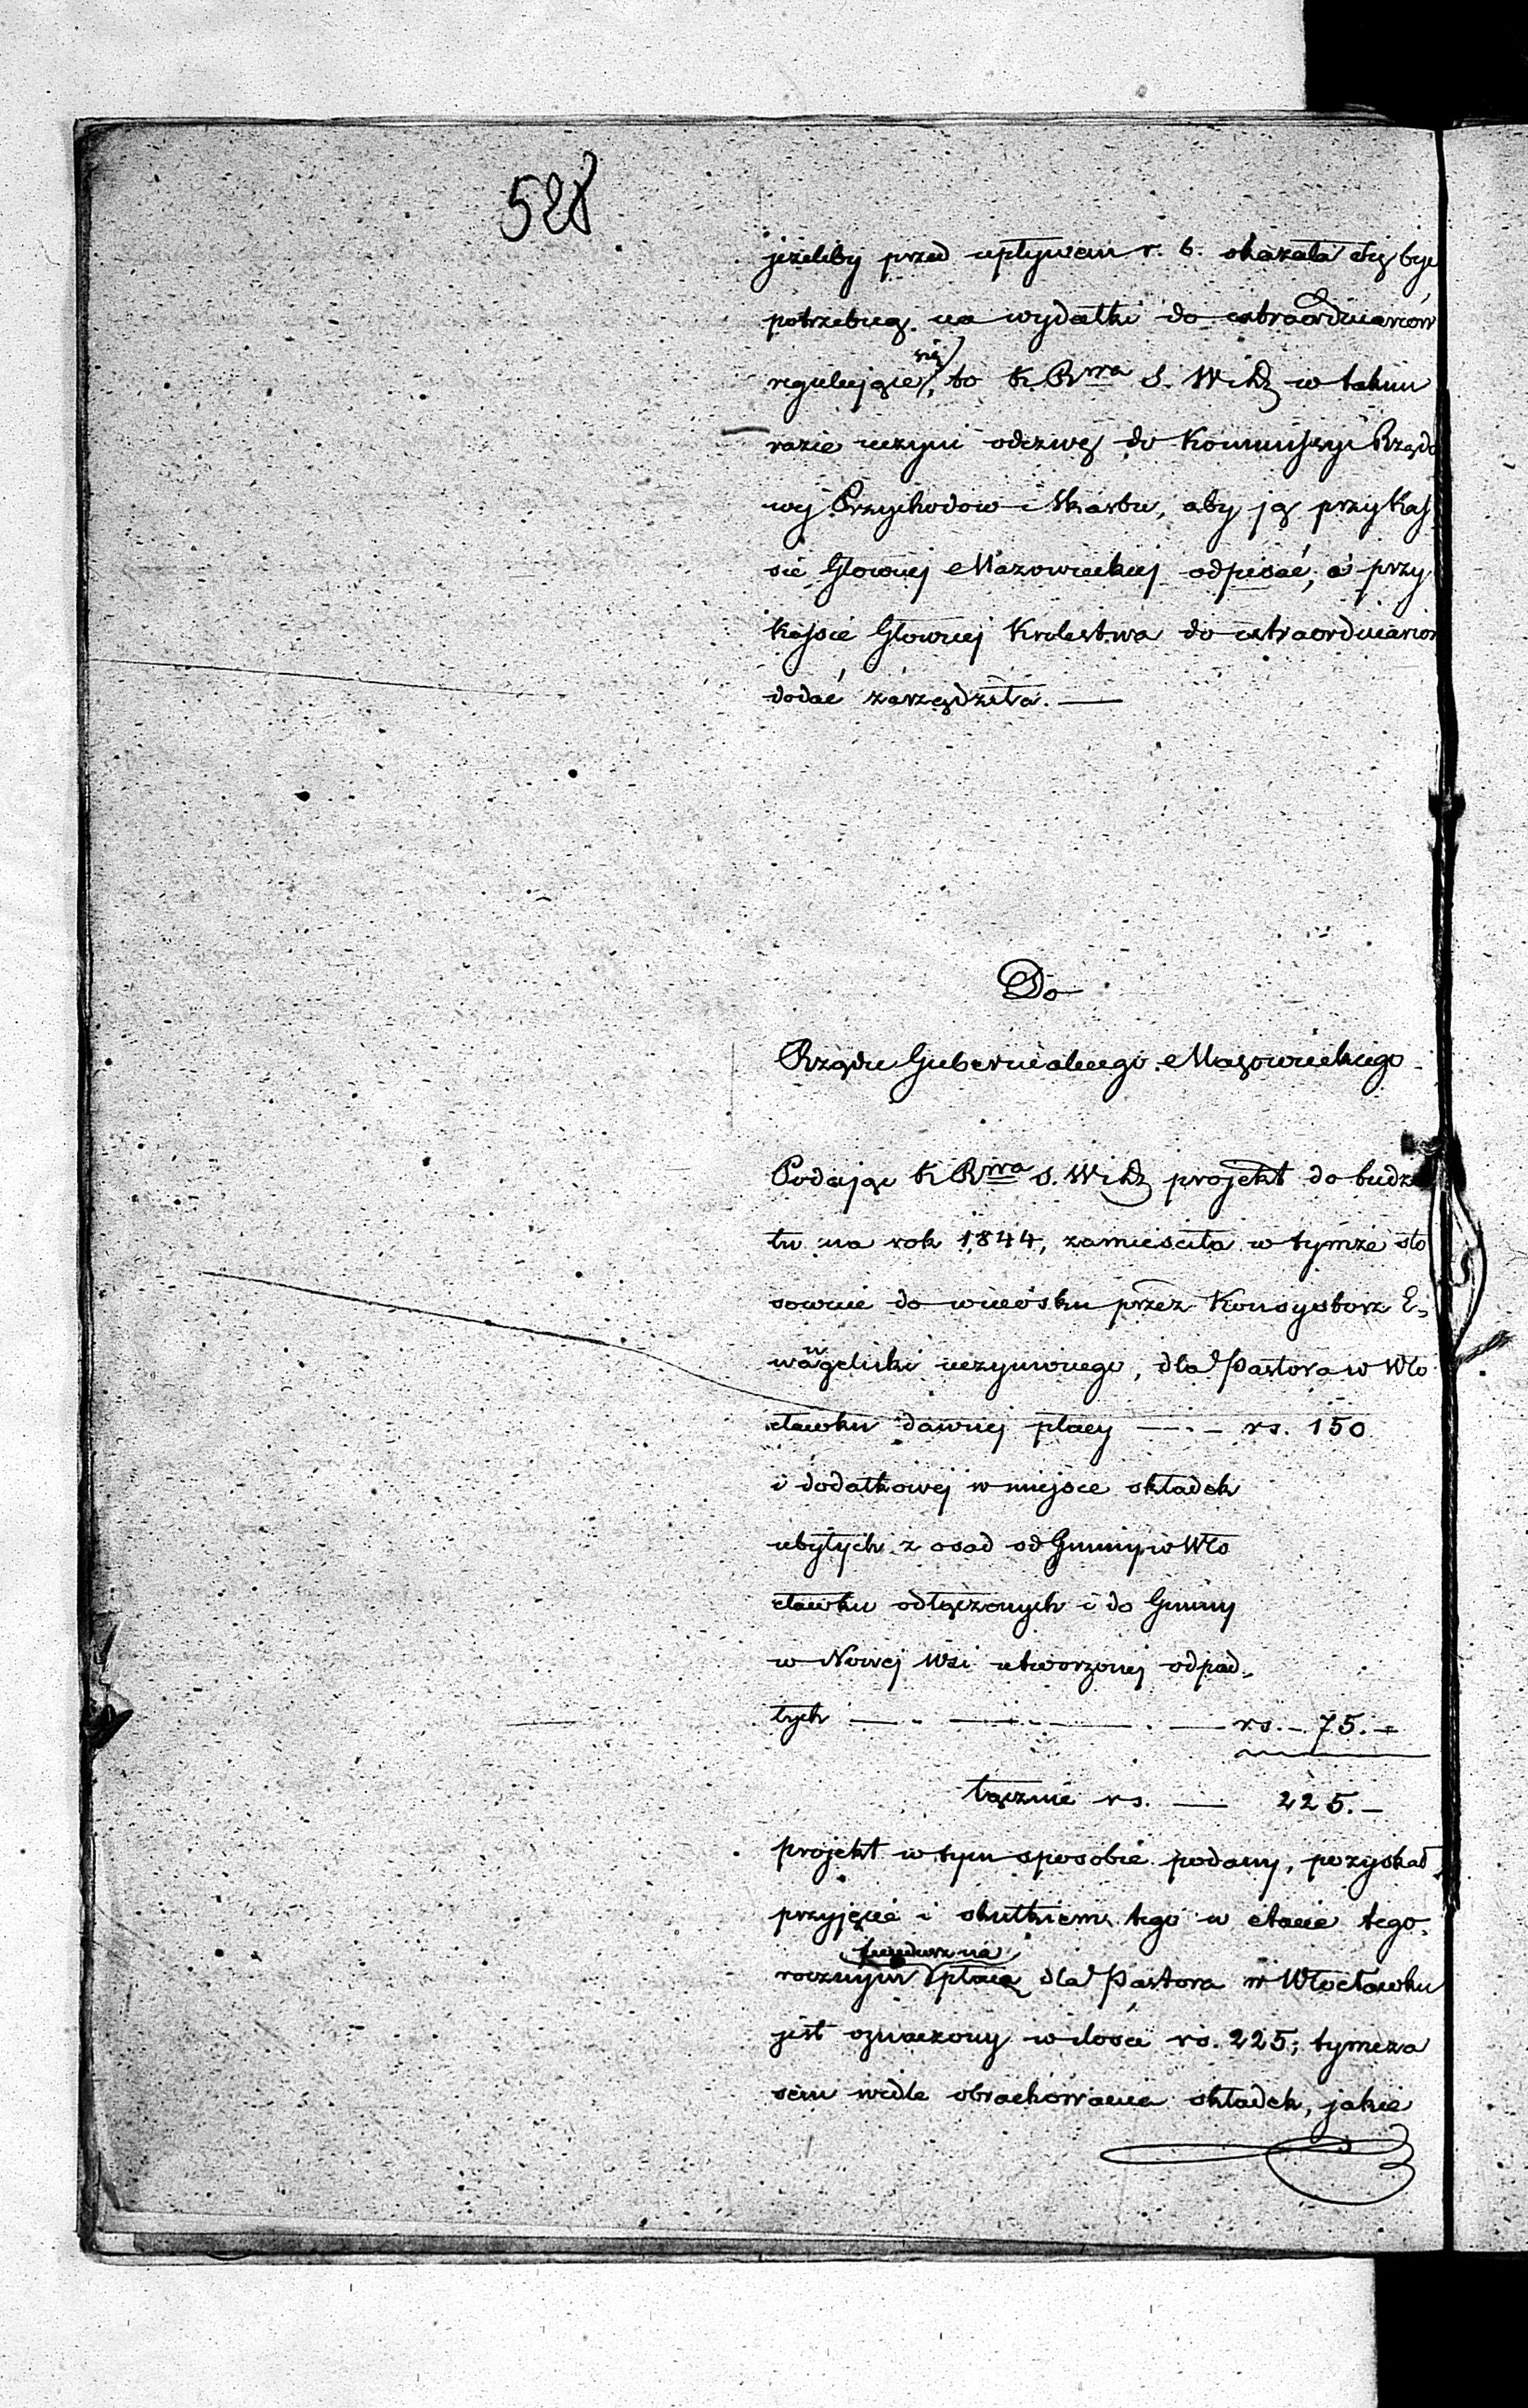 528
jeżeliby przed upływem r. b. okazała się być
potrzebną na wydatki do extraordinariów
regulujące się, to K. Rwa S. W i D w takim
razie uczyni odezwę do Kommissyi Rządo
wej Przychodow i Skarbu, aby ją przy Kas
sie Głownej Mazowieckiej odpisać, a przy
Kassie Głownej Krolestwa do extraordinariow
dodać zarządziła. —
Do
Rządu Gubernialnego Mazowieckiego
Podając K Rwa S. W i D projekt do budże
tu na rok 1844, zamieściła w tymże sto
sownie do wniosku przez Konsystorz E,
wangelicki uczynionego, dla Pastora w Wło
cławku dawnej płacy —.— rs. 150
i dodatkowej w miejsce składek
ubyłych z osad od Gminy w Wło
cławku odłączonych i do Gminy
w Nowej Wsi utworzonej odpad,
łych —.—.—.— rs. — 75. —
łącznie rs. — 225. —
projekt w tym sposobie podany, pozyskał
przyjęcie i skutkiem tego w etacie tego,
rocznym fundusz na płacę dla Pastora w Włocławku
jest oznaczony w ilości rs. 225; tymcza
sem wedle obrachowania składek, jakie